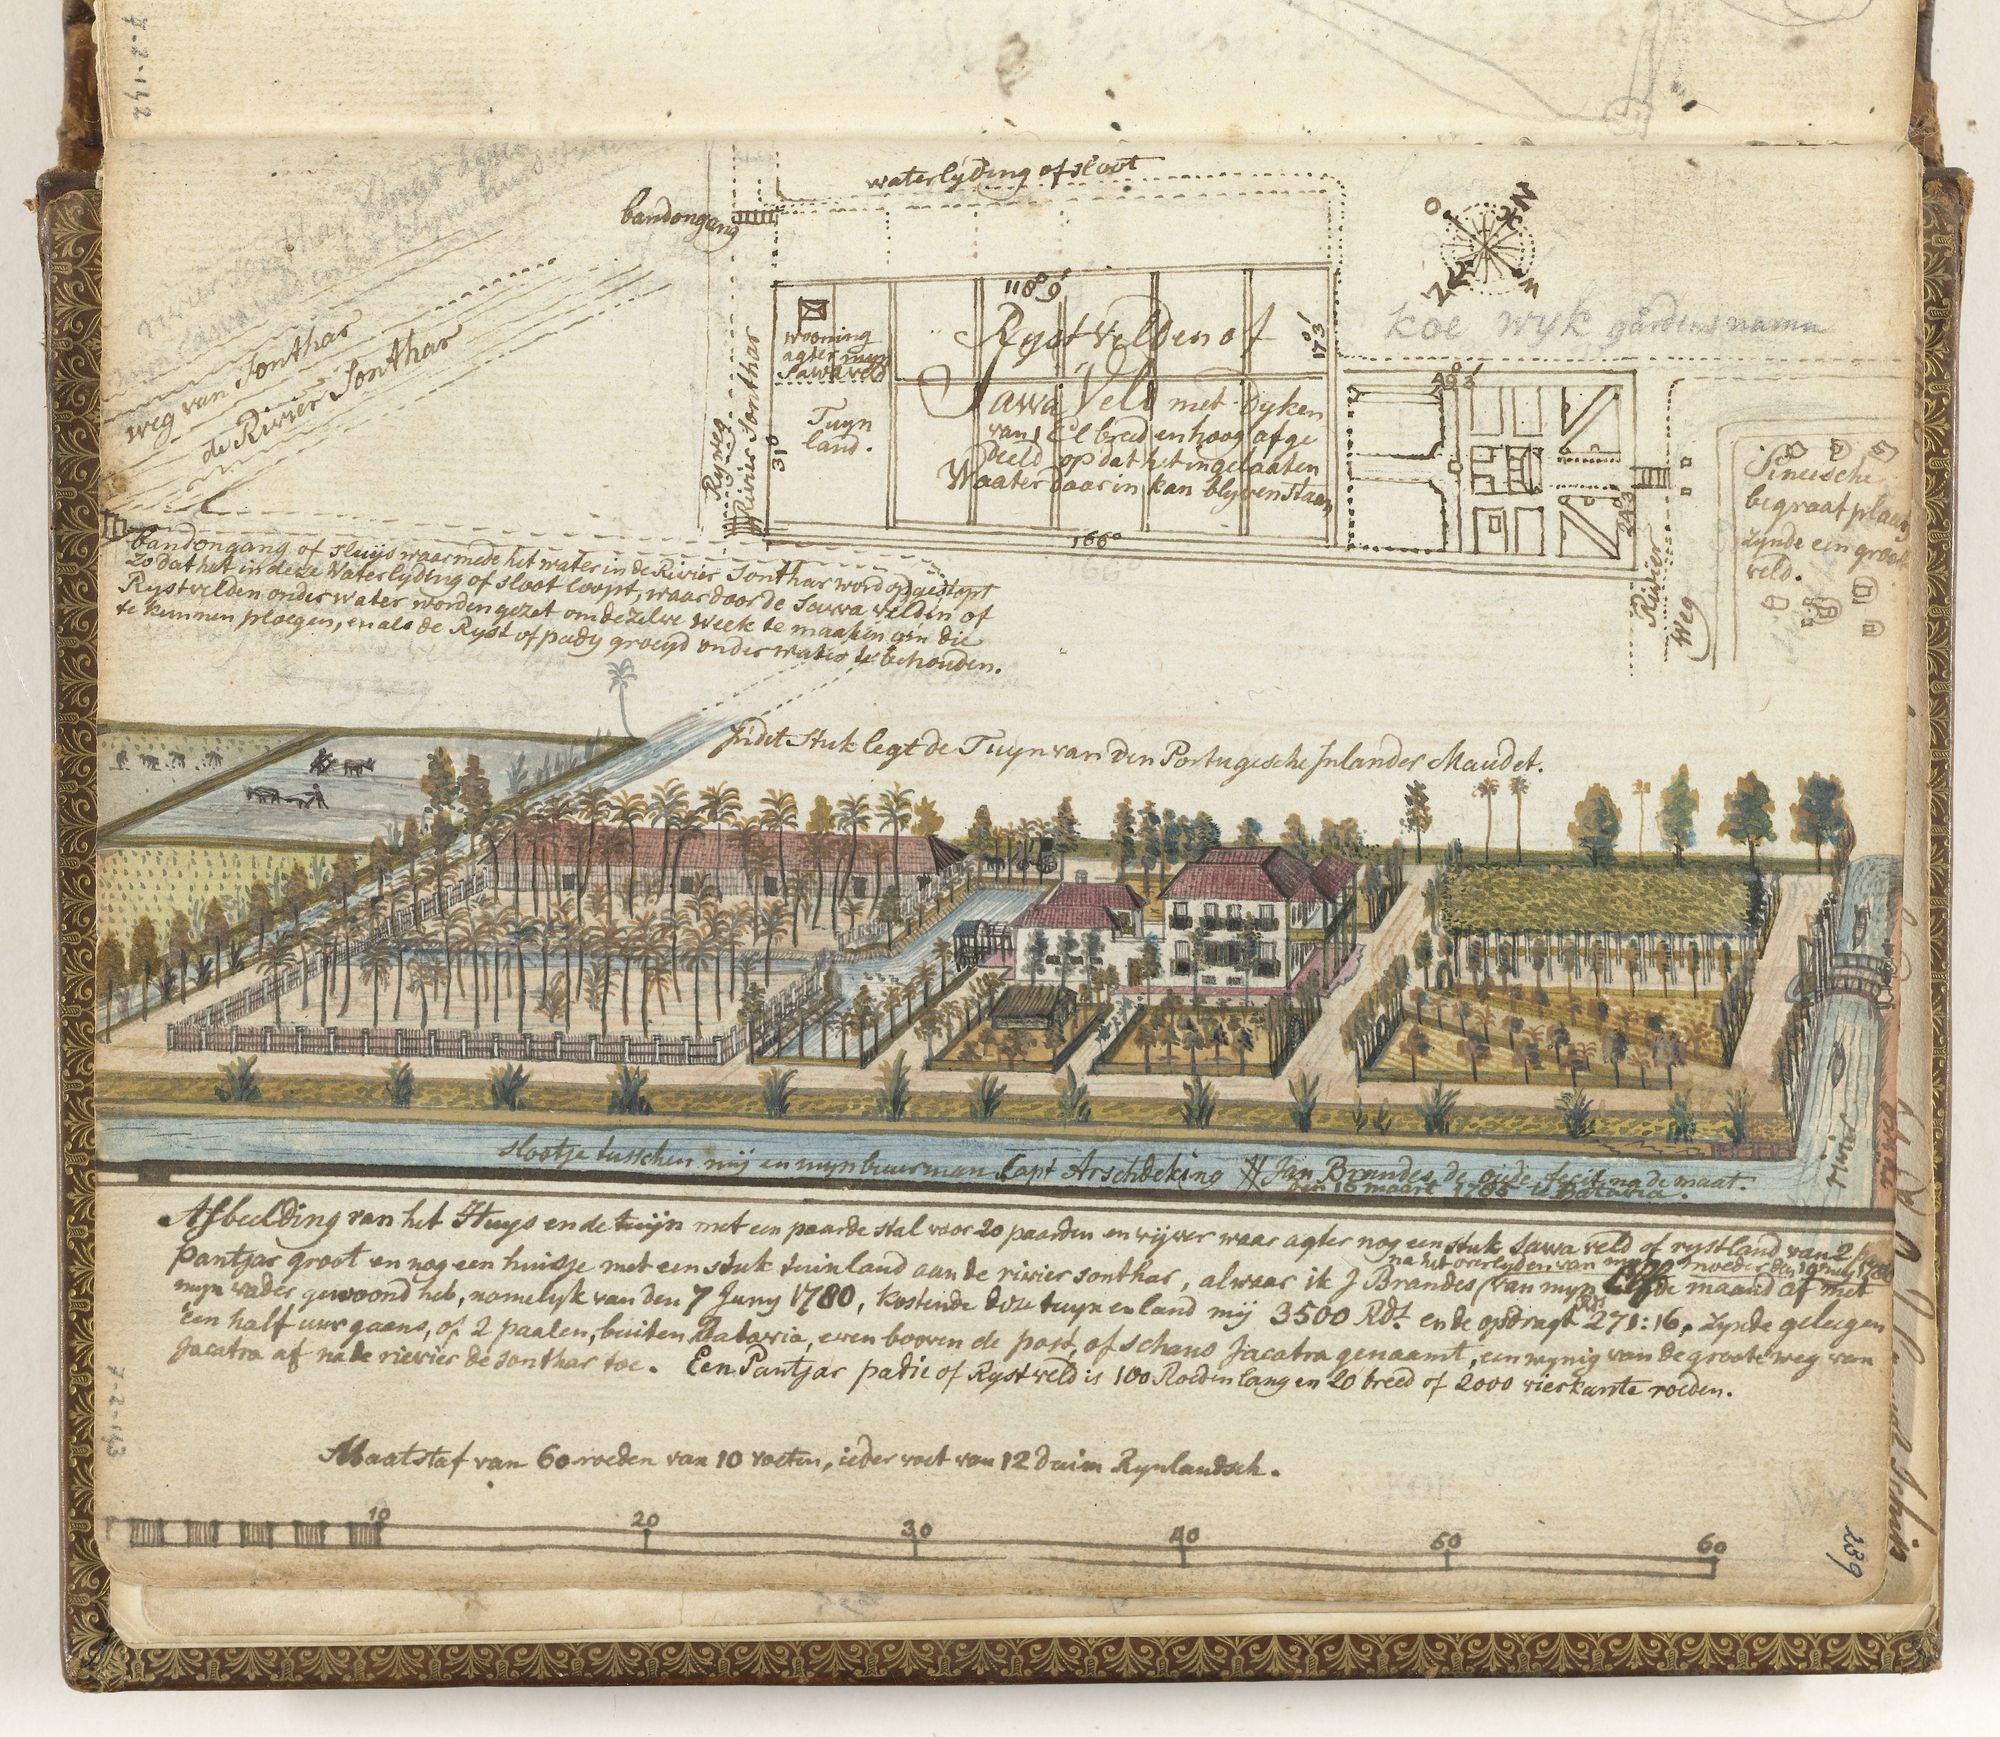 waterlyding of sloot
bandongang
weg van Sonthar
de Rivier Sonthar
Rywèg
Rivier Sonthar
wooning
agter myn
Sawa veld
Tuyn
land.
31⁰
118⁰ 9'
17⁰ 3'
166⁰
Rystvelden of
Sawa Veld met Dyken
van 1 El breed en hoog afge
deeld op dat het ingelaaten
Waater daar in kan blyven staan
O
N
Z
W
koe wyk gardens namu
49⁰ 3'
24⁰ 3'
Rivier
Weg
Sineesche
begraaf plaats
zynde een groot
veld.
bandongang of sluys waarmede het water in de Rivier Sonthar word opgestopt
zo dat het in deze Waterlyding of sloot loopt, waar door de Sawa velden of
Rystvelden onder water worden gezet om dezelve week te maaken en die
te kunnen ploegen, en als de Ryst of pady groeyd onder water te behouden.
In dit Stuk legt de Tuyn van den Portugesche Inlander Maudet.
slootje tusschen mij en myn buurman Capt Arschdeking // Jan Brandes de oude fecit na de maat.
den 16 maart 1785 te Batavia.
rivier
Afbeelding van het Huys en de tuyn met een paarde stal voor 20 paarden en vijver waar agter nog een stuk Sawa veld of rystland van 2
pantjar groot en nog een huisje met een stuk tuinland aan de rivier sonthar, alwaar ik J Brandes (van myn maand af met
na het overleyden van moeder den
myn vader gewoond heb, namelyk van den 7 Juny 1780, kostende deze tuyn en land mij 3500 Rd.t en de opdragt 271:16, zynde gelegen
een half uur gaans, of 2 paalen, buiten Batavia, even booven de post, of schans Jacatra genaamt, een wynig van de groote weg van
Jacatra af na de rievier de sonthar toe. Een Pantjar padie of Rystveld is 100 Roeden lang en 20 breed of 2000 vierkante roeden.
Maatstaf van 60 roeden van 10 voeten, ieder voet van 12 duim Rynlandsch.
10 20 30 40 50 60
7-2-142
7-2-143
239